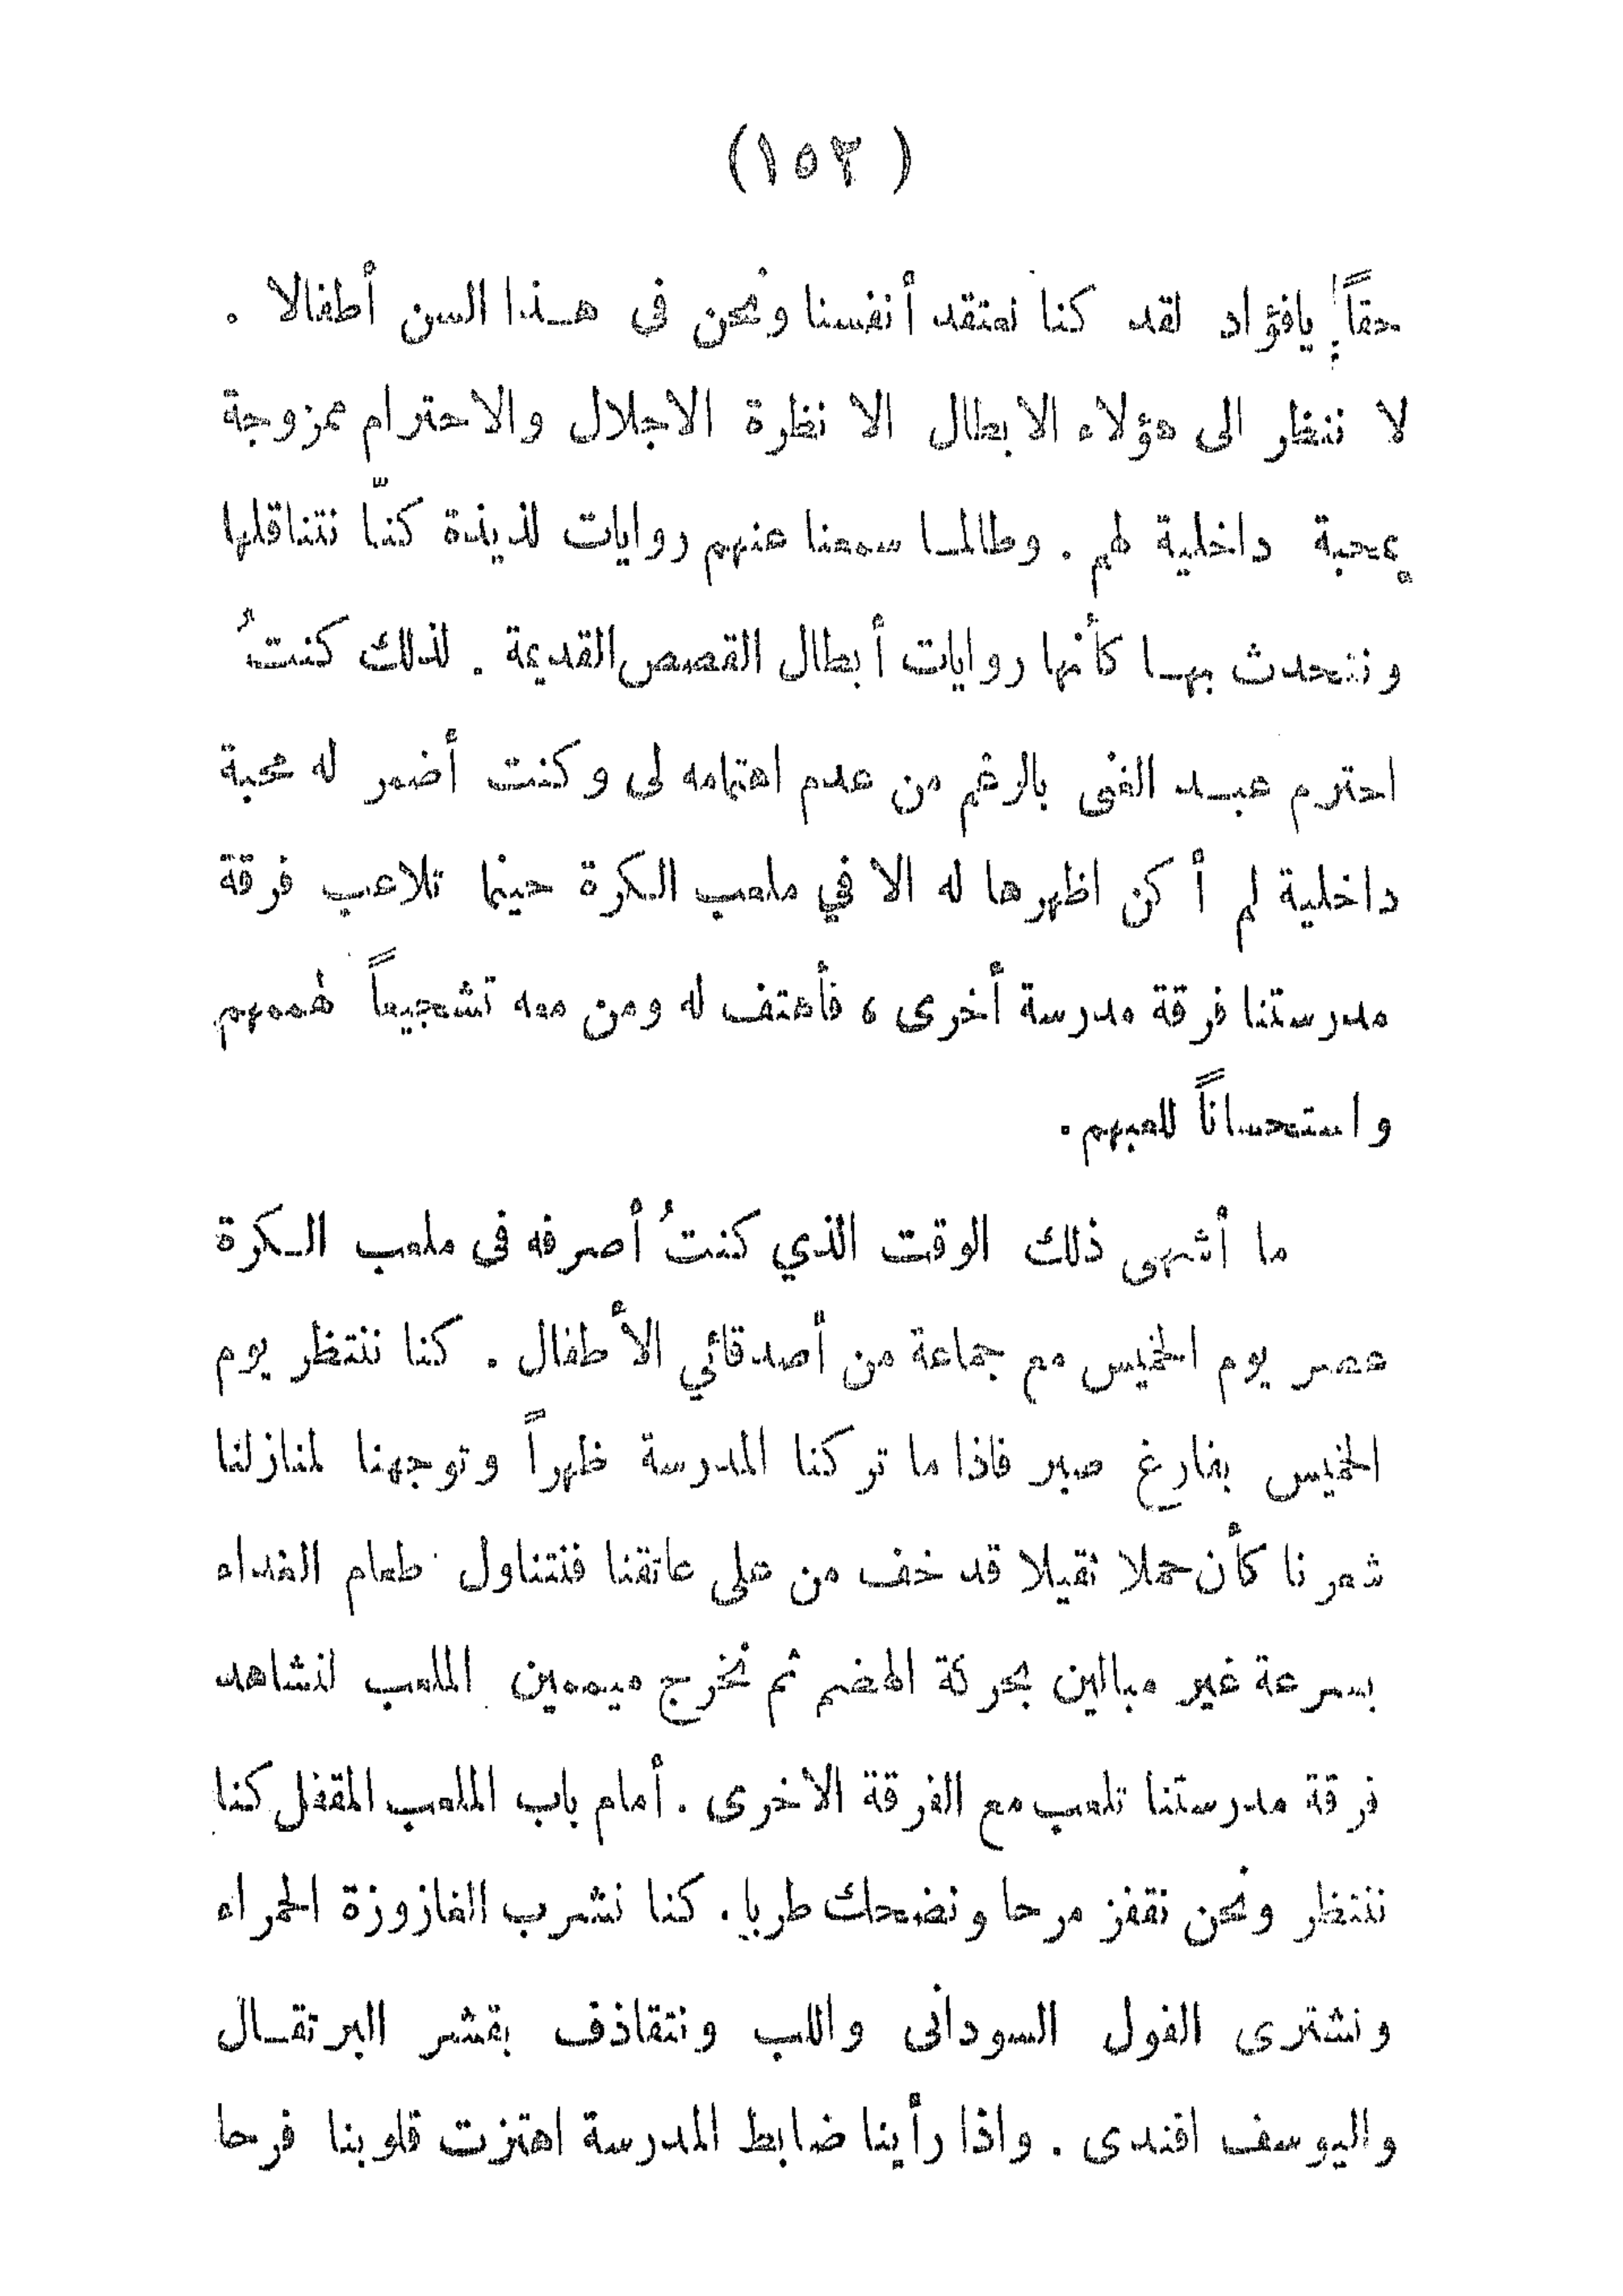 (١٥٣)
حقاً يافؤاد لقد كنا نعتقد أنفسنا ونحن فى هذا السن أطفالا .
لا ننظر الى هؤلاء الابطال الا نظرة الاجلال والاحترام ممزوجة
بمحبة داخلية لهم . وطالما سمعنا عنهم روايات لذيذة كنّا نتناقلها
ونتحدث بها كأنها روايات أبطال القصص القديمة . لذلك كنتُ
احترم عبد الغنى بالرغم من عدم اهتمامه لى وكنت أضمر له محبة
داخلية لم أكن اظهرها له الا في ملعب الكرة حينما تلاعب فرقة
مدرستنا فرقة مدرسة أخرى ، فأهتف له ومن معه تشجيعاً لهممهم
واستحساناً للعبهم .
ما أشهى ذلك الوقت الذي كنتُ أصرفه فى ملعب الكرة
عصر يوم الخميس مع جماعة من أصدقائي الأطفال . كنا ننتظر يوم
الخميس بفارغ صبر فاذا ما تركنا المدرسة ظهراً وتوجهنا لمنازلنا
شعرنا كأن حملا ثقيلا قد خف من على عاتقنا فنتناول طعام الغداء
بسرعة غير مبالين بحركة الهضم ثم نخرج ميممين الملعب لنشاهد
فرقة مدرستنا تلعب مع الفرقة الاخرى . أمام باب الملعب المقفل كنا
ننتظر ونحن نقفز مرحا ونضحك طربا . كنا نشرب الغازوزة الحمراء
ونشترى الفول السودانى واللب ونتقاذف بقشر البرتقال
واليوسف افندى . واذا رأينا ضابط المدرسة اهتزت قلوبنا فرحا